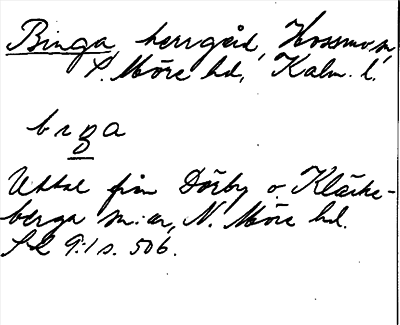 Binga, herrgård, Hossmo sn,
S. Möre hd, Kalm. l.
brga
Uttal från Dörby o. Kläcke-
berga sn:ar, N. Möre hd.
Sd 9:1 s. 506.